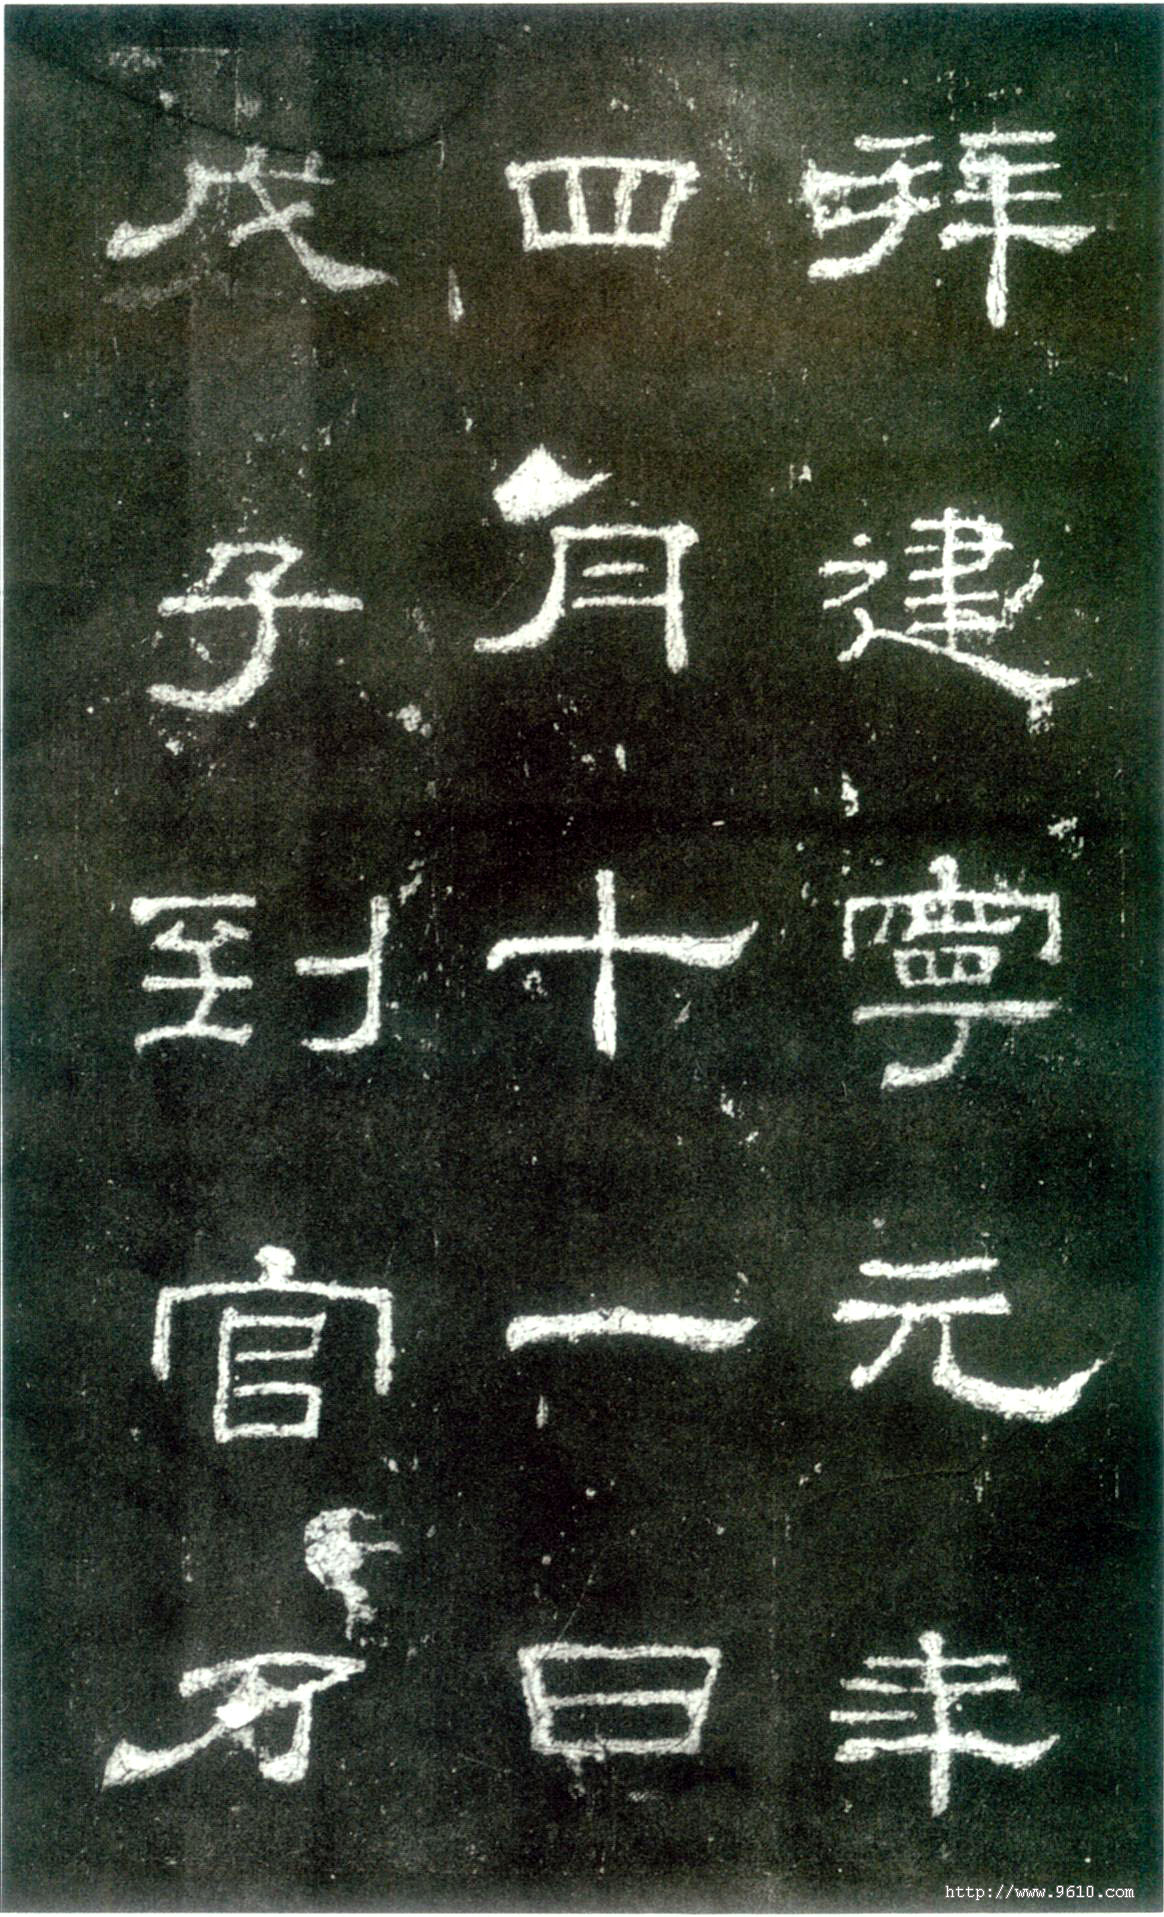 拜建寧元年
四月十一日
戊子到官乃
http://www.9610.com